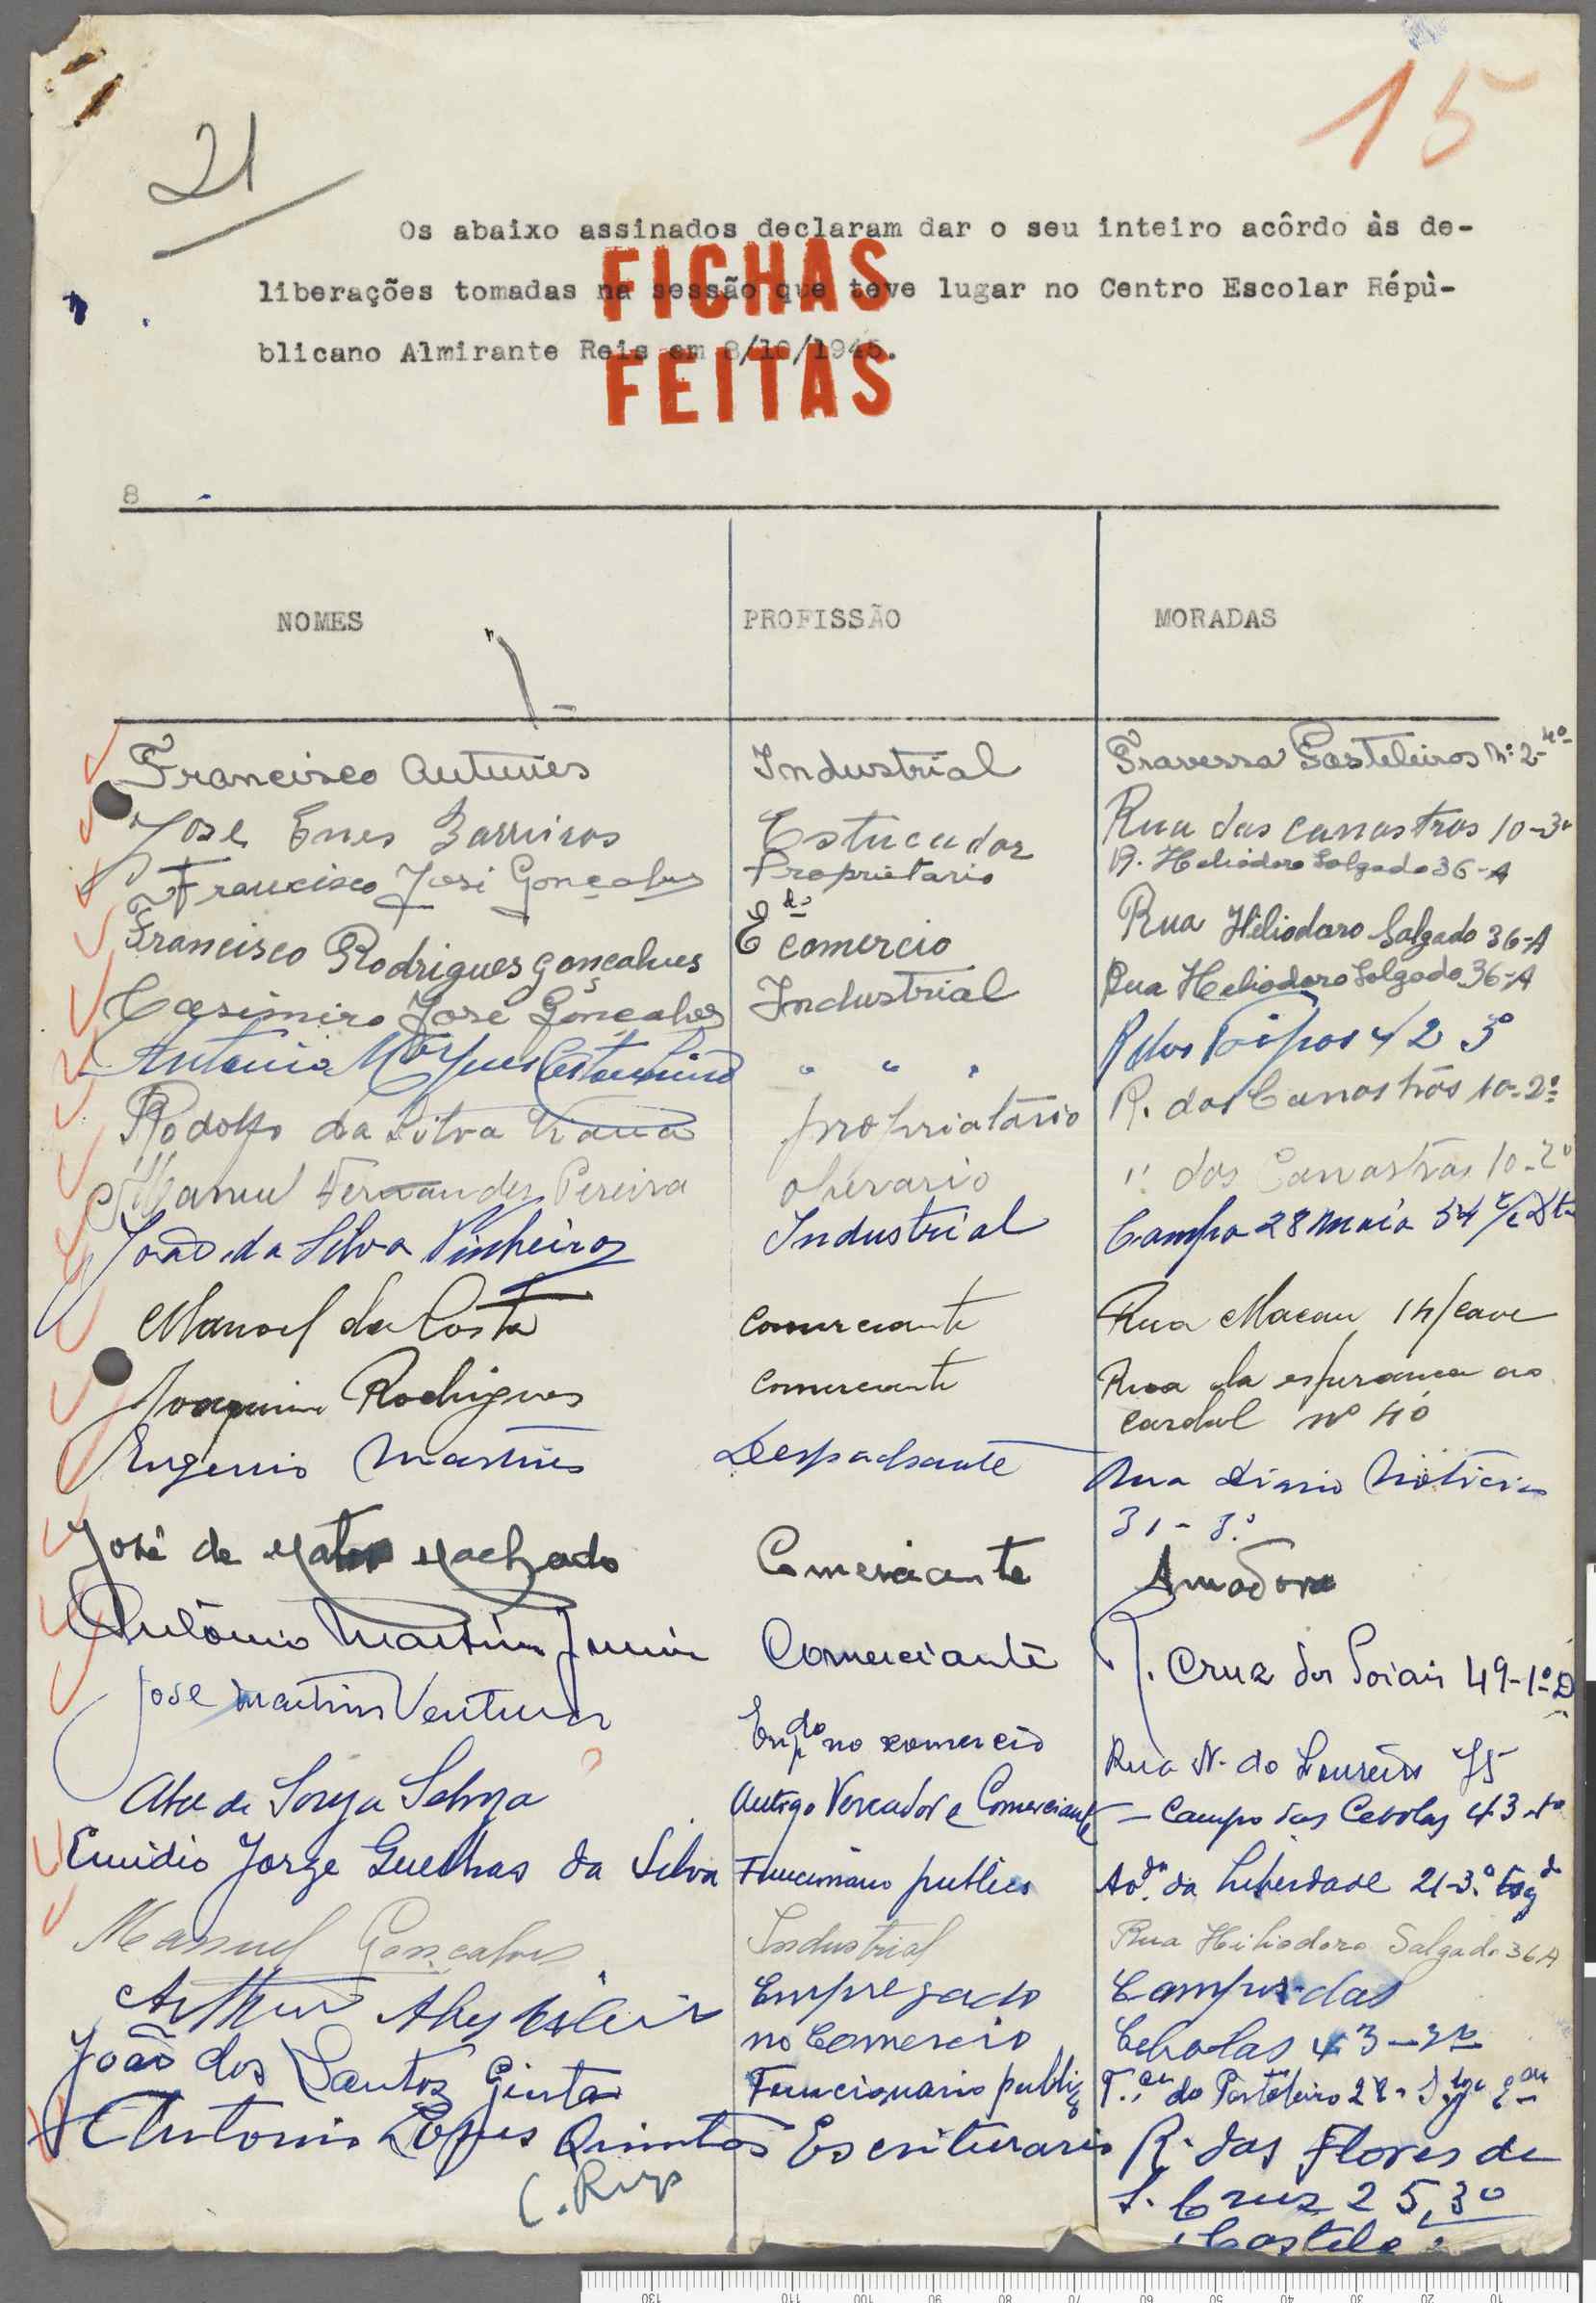 15
21
Os abaixo assinados declaram dar o seu inteiro acôrdo às de-
liberações tomadas na sessão que teve lugar no Centro Escolar Répù-
blicano Almirante Reis em 8/10/1945.
FICHAS
FEITAS
8
NOMES PROFISSÃO MORADAS
Francisco Antunes Industrial Travessa Pasteleiros nº 2-4º
José Enes Barreiros Estucador Rua das canastras 10-3º
Francisco José Gonçalves Proprietario R. Heliodoro Salgado 36-A
Francisco Rodrigues Gonçalves E do comercio Rua Héliodoro Salgado 36-A
Casimiro José Gonçalves Industrial Rua Heliodoro Salgado 36-A
Antonio Marques " " " R dos 42 3º
Rodolfo da Silva propriatario R. das Canastras 10-2º
Manuel Fernandes Pereira operario " das Canastras 10-2º
João da Silva Pinheiro Industrial Campo 28 Maio 54 r/c Dto
Manoel da Costa comerciante Rua Macau 14/cave
Joaquim Rodrigues comerciante Rua da esperanca ao
cardal nº 40
Eugenio Martins Despachante Rua diario Noticias
31-3.º
José de Matos Machado Comerciante Amadora
António Martins Junior Comerciante R. Cruz dos Poiais 49-1º D
José Martins Ventura Empdo no comercio Rua N. do Loureiro 75
Abel de Antigo Vereador e Comerciante - Campo das Cebolas 43
Emidio Jorge Guelhas da Silva Funcionário publico Avda da Liberdade 21-3.º Esqdo
Manuel Gonçalves Industrial Rua Heliodoro Salgado 36A
Arthur Empregado Campo das
no Comercio Cebolas 43-3º
João dos Santos Funcionario publico T.
Antonio Lopes Quintas Escriturario R. das Flores de
S. Cruz 25, 3º
Castelo